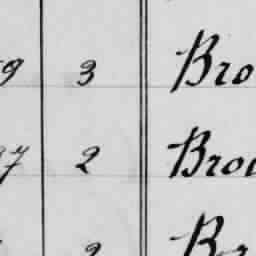 9 3 Bro
7 2 Bro
2 Br